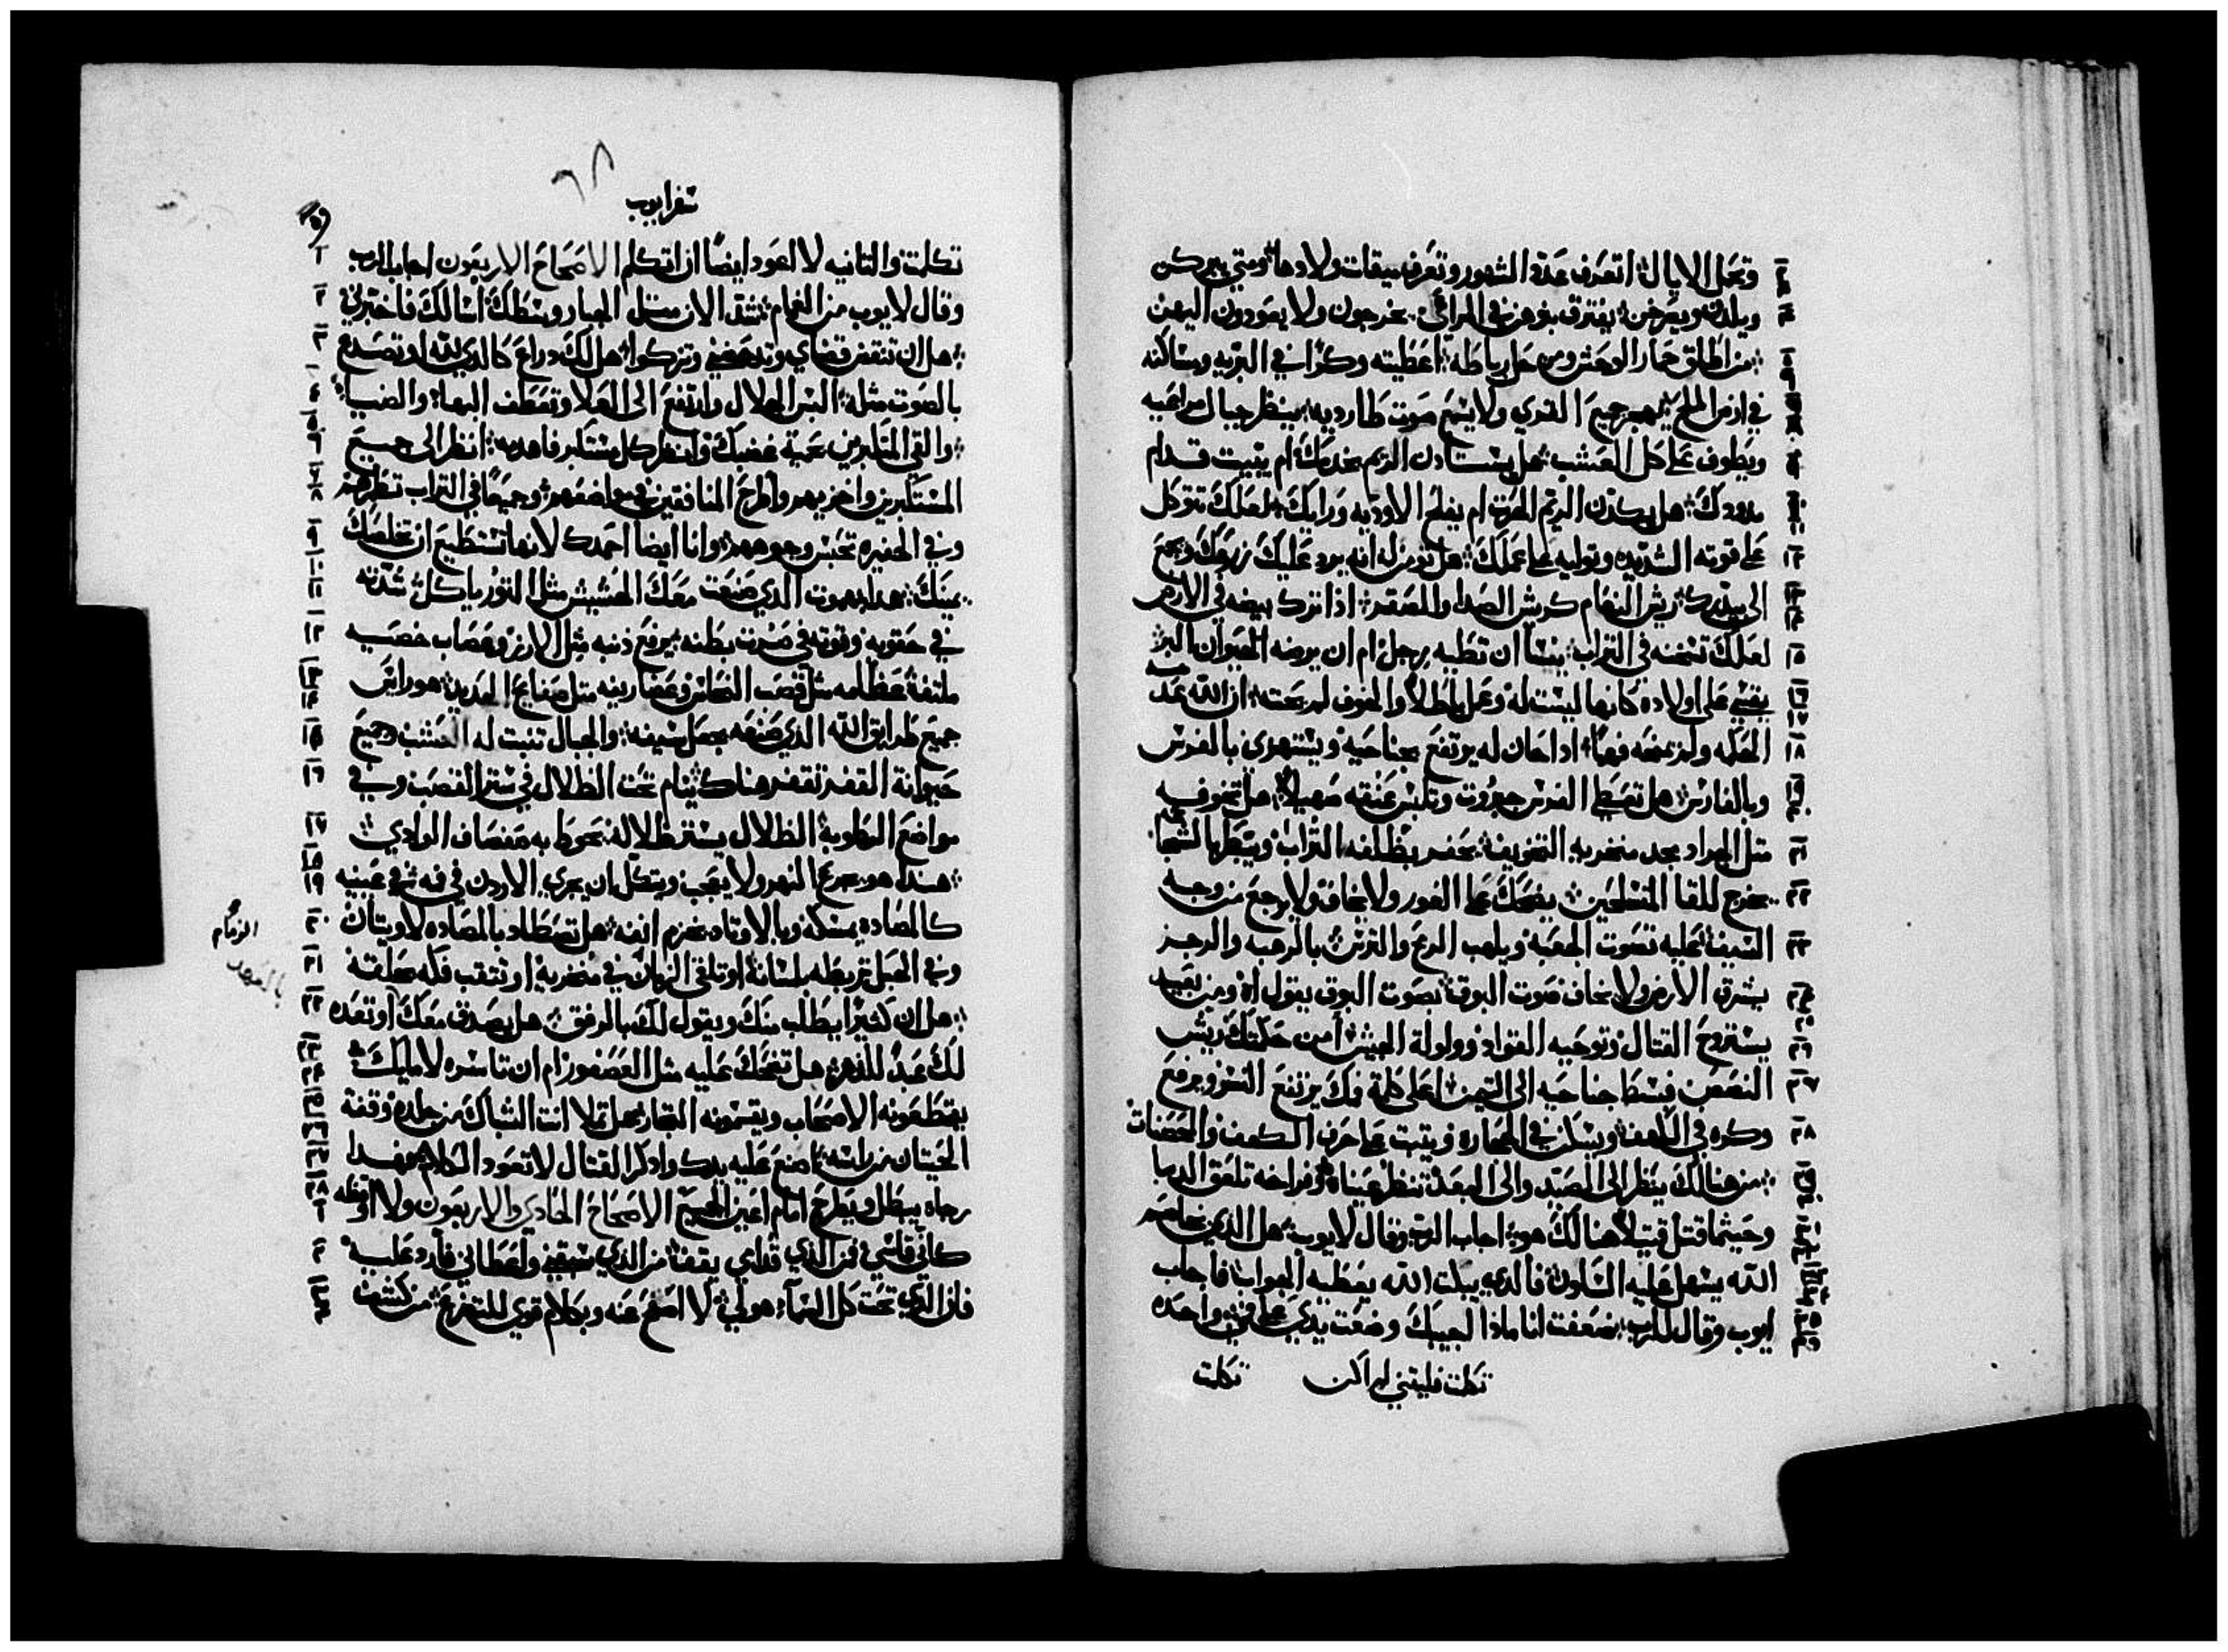 وتحبل الايال اتعرف عدة الشهور وتعرف ميقات ولادها ومتي يبركن
ويلدن ويمرخن يفترق بنوهن في المراعي يخرجون ولا يعودون اليهن
من اطلق حمار الوحش ومن حل رباطه اعطيته وكرا في البريه ومساكنه
في ارض الملح يهجر جميع القري ولا يسمع صوت طارديه ينظر جبال مراعيه
ويطوف علي كل العشب هل يستادن الريم يخدمك ام يبيت قدام
مدودك هل يكدن الريم للحرت ام يفلح الاوديه وراك لعلك تتوكل
علي قوته الشديده وتوليه علي عملك هل تومن له انه يرد عليك زرعك ويجمع
الي بيدرك ريش النعام كريش الصدا والصقر اذا ترك بيضه في الارض
لعلك تسخنه في التراب ينسا ان تطيه رجل ام ان يرضه الحيوان البر
يقسي علي اولاده كانها ليست له وعمل باطلا والخوف لم بحت ان الله عدم
الحكه ولم يمنحه فهما اذا حان له يرتفع بجناحيه ويستهزي بالفرس
وبالفارس هل تعطي الفرس جبروت وتلبس عنقه صهيلا هل تخوفه
مثل الجراد مجد منخريه التخويف يحفر بظلفه التراب ويتبطر بالشجاعه
يخرج للقا المتسلحين يضحك علي الخوف ولا يخاف ولا يرجع من وجه
السيف عليه تصوت الجعبه ويلهب الرمح والترس بالرهبه والرجز
يشرق الارض ولا يخاف صوت البوق بصوت البوق يقول اه ومن بعيد
يستروح القتال وتوحيه القواد وولولة الجيش أمن حكمتك ريش
النصص فبسط جناحيه الي التيمن اعلي كلمة فمك يرتفع النسر ويرفع
وكره في الكهف ويسكن في الحجاره ويتبت علي حرف الكهف والحصنات
من هنالك ينظر الي الصيد والي البعد تنظر عيناه وفراخه تلعق الدما
وحيثما قتل قتيلا هنالك هو اجاب الرب وقال لايوب هل الذي يخاصم
الله يسهل عليه السلون فالذي يبكت الله يعطيه الجواب فاجاب
ايوب وقال للرب ضعفت انا ماذا اجيبك وضعت يدي علي في واحده
تكلت فليتني لم اكن تكلت
سفر ايوب
تكلت والتانيه لا اعود ايضا ان اتكلم الاصحاح الاربعون اجاب الرب
وقال لايوب من الغمام شد الان متل الجبار وسطك اسالك فاخبرني
هل ان تنقض قضاي وتدحضني وتزكوا هل لك دراع كالذي لله او تصدع
بالصوت مثله البس الجلال وارتفع الي العلا وتعطف البها والضيا
والقي المتكبرين بحمية غضبك وانظر كل مستكبر فاهديه انظر الي جميع
المستكبرين واخزيهم واطرح المنافقين في مواضعهم وجميعا في التراب تطمرهم
وفي الحفيره تحبس وجوههم وانا ايضا احمدك لانها تستطيع ان تخلصك
يمينك هذا بهموت الذي صنعت معك الحشيش مثل التور ياكل شدته
في حقويه وقوته في صرت بطنه يرفع ذنبه مثل الارز وعصاب خصيه
ملتفه عظامه مثل قصب النحاس وغضاريفه متل صفايح الحديد هو راس
جميع طرايق الله الذي صنعه يجعل سيفه والجبال تنبت له العشب وجميع
حيوانة القفر تقفز هناك ينام تحت الظلال في ستر القصب وفي
مواضع الرطوبة الظلال يستر ظلاله تحوط به صفصاف الوادي
هذا هو يجرع النهر ولا يعجب ويتكل ان يجري الاردن في فمه في عينيه
كالصاده يمسكه وبالاوتاد يخزم انفه هل تصطاد بالصاده لاويتان
وفي الحبل تربطه بلسانه او تلقي الزمام في منخريه او تتقب فكه بحلقه
هل ان كثيرا يطلب منك ويقول لك بالرفق هل يصدق معك او تعده
لك عبد للدهر هل تضحك عليه مثل العصفور ام ان تاسره لامايك
يقتطعونه الاصحاب ويقسمونه التجار هل تملا انت الشباك من جلده وقفة
الحيتان من راسه اصنع عليه يدك واذكر القتال لا تعود الكلام فهذا
رجاه يبطل ويطرح امام اعين الجميع الاصحاح الحادي والاربعون ولا اوقظه
كاني قاسي فمن الذي قدامي يقف من الذي سبقني واعطاني فارد عليه
فان الذي تحت كل السماء هو لي لا اصفح عنه وبكلام قوي للتضرع من كشف
الزمام